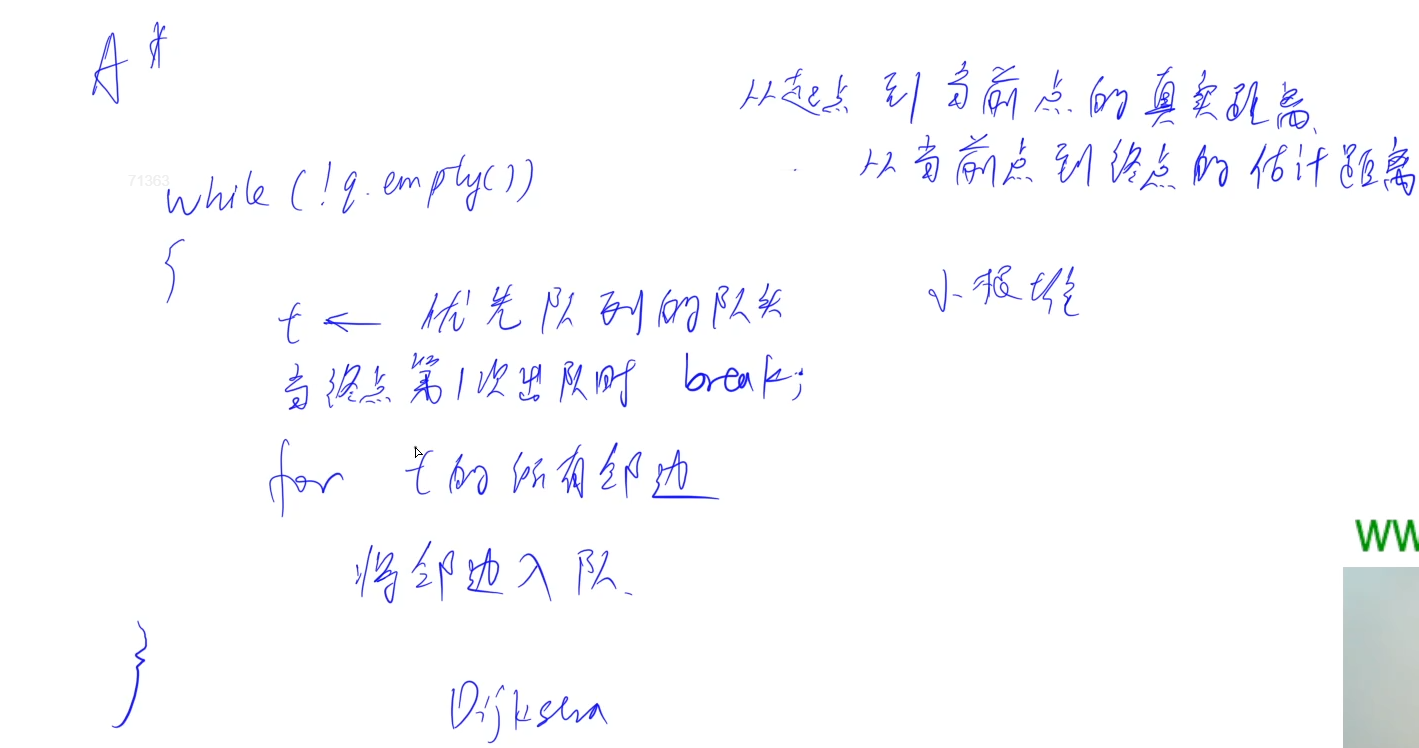 A*
从起点到当前点的真实距离
从当前点到终点的估计距离
71363
while (!q.empty())
{
t ← 优先队列的队头
小根堆
当终点第1次出队时 break;
for t的所有邻边
将邻边入队.
}
Dijksra
WW